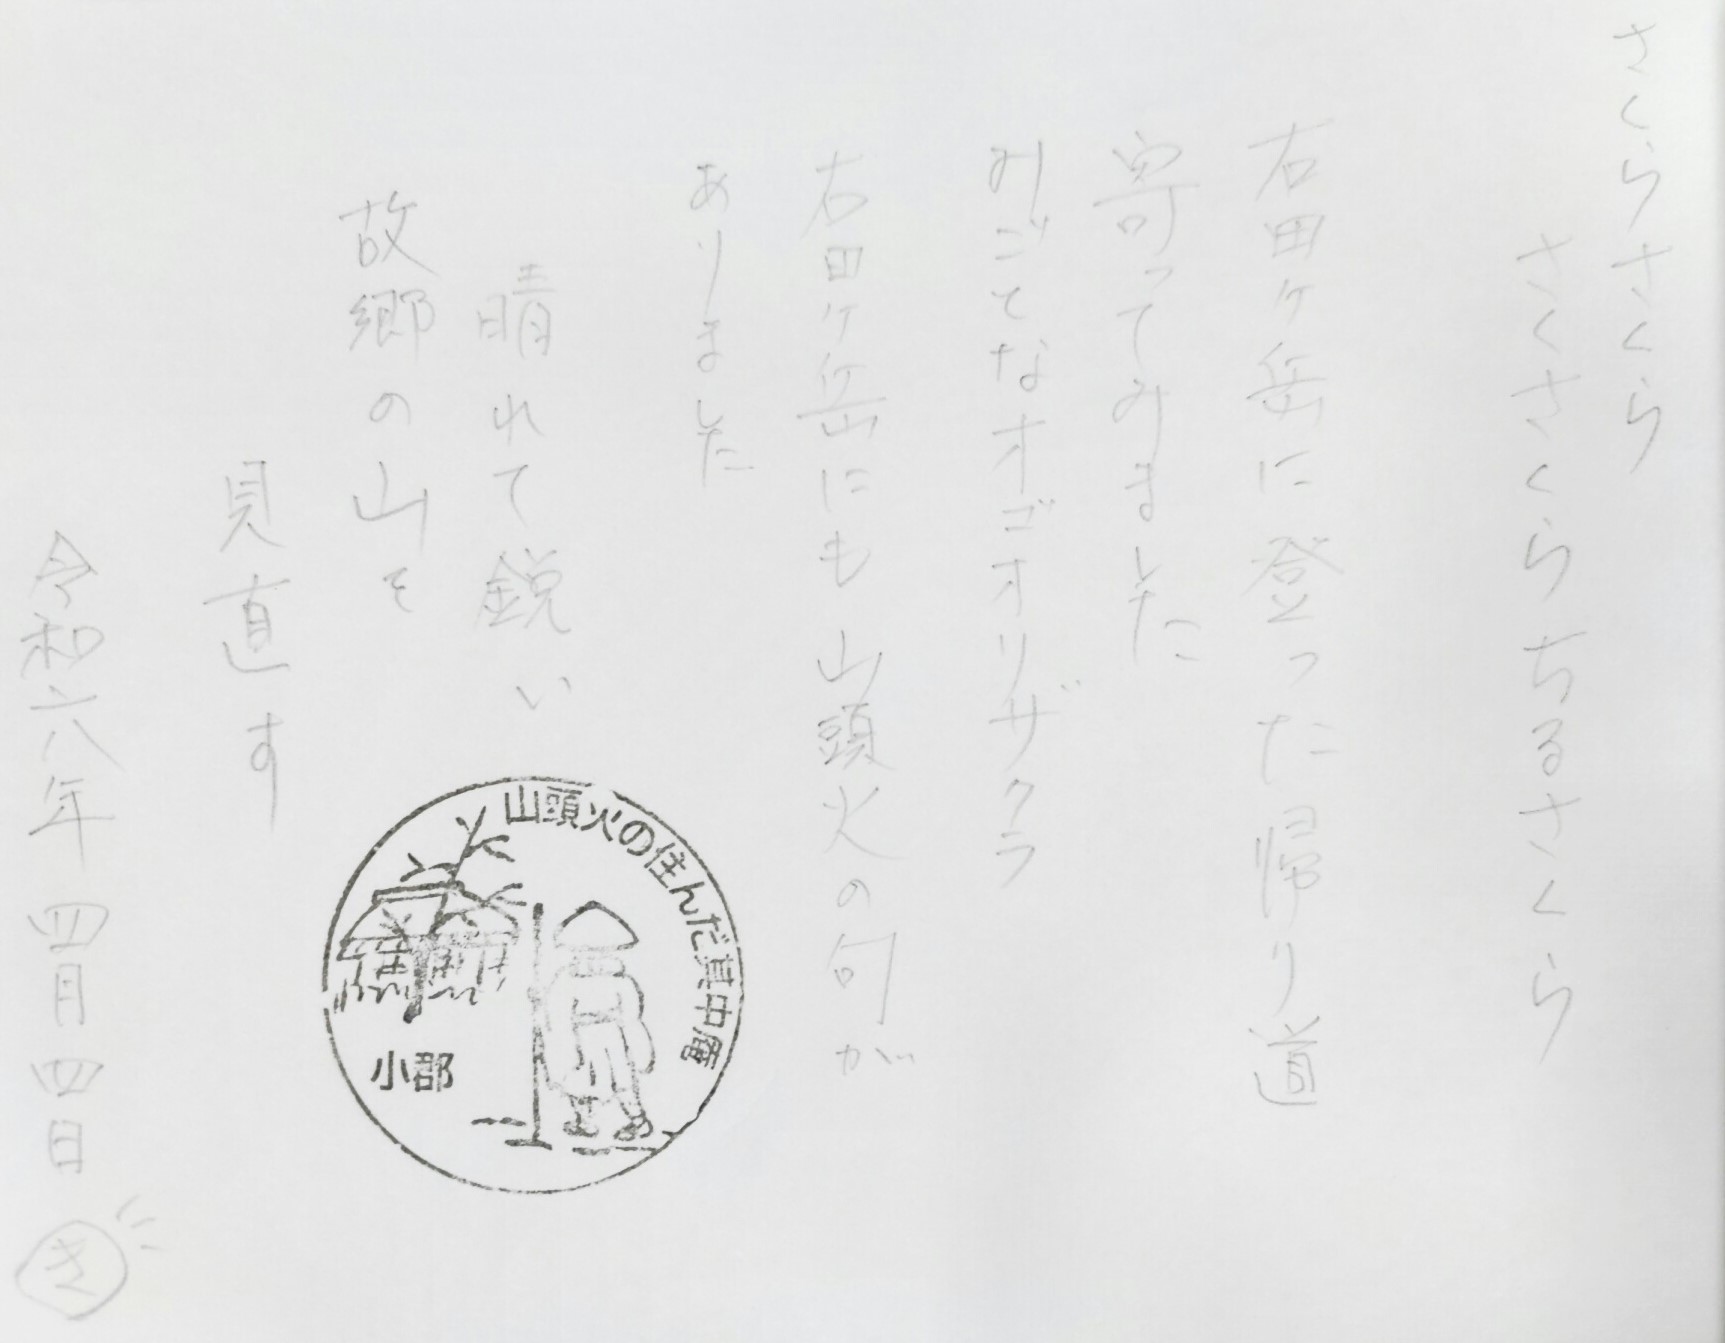 さくらさくら
さくさくらちるさくら
右田ヶ岳に登った帰り道
寄ってみました
みごとなオゴオリザクラ
右田ヶ岳にも山頭火の句が
ありました
晴れて鋭い
故郷の山を
見直す
令和六年四月四日
き
山頭火の住んだ其中庵
小郡